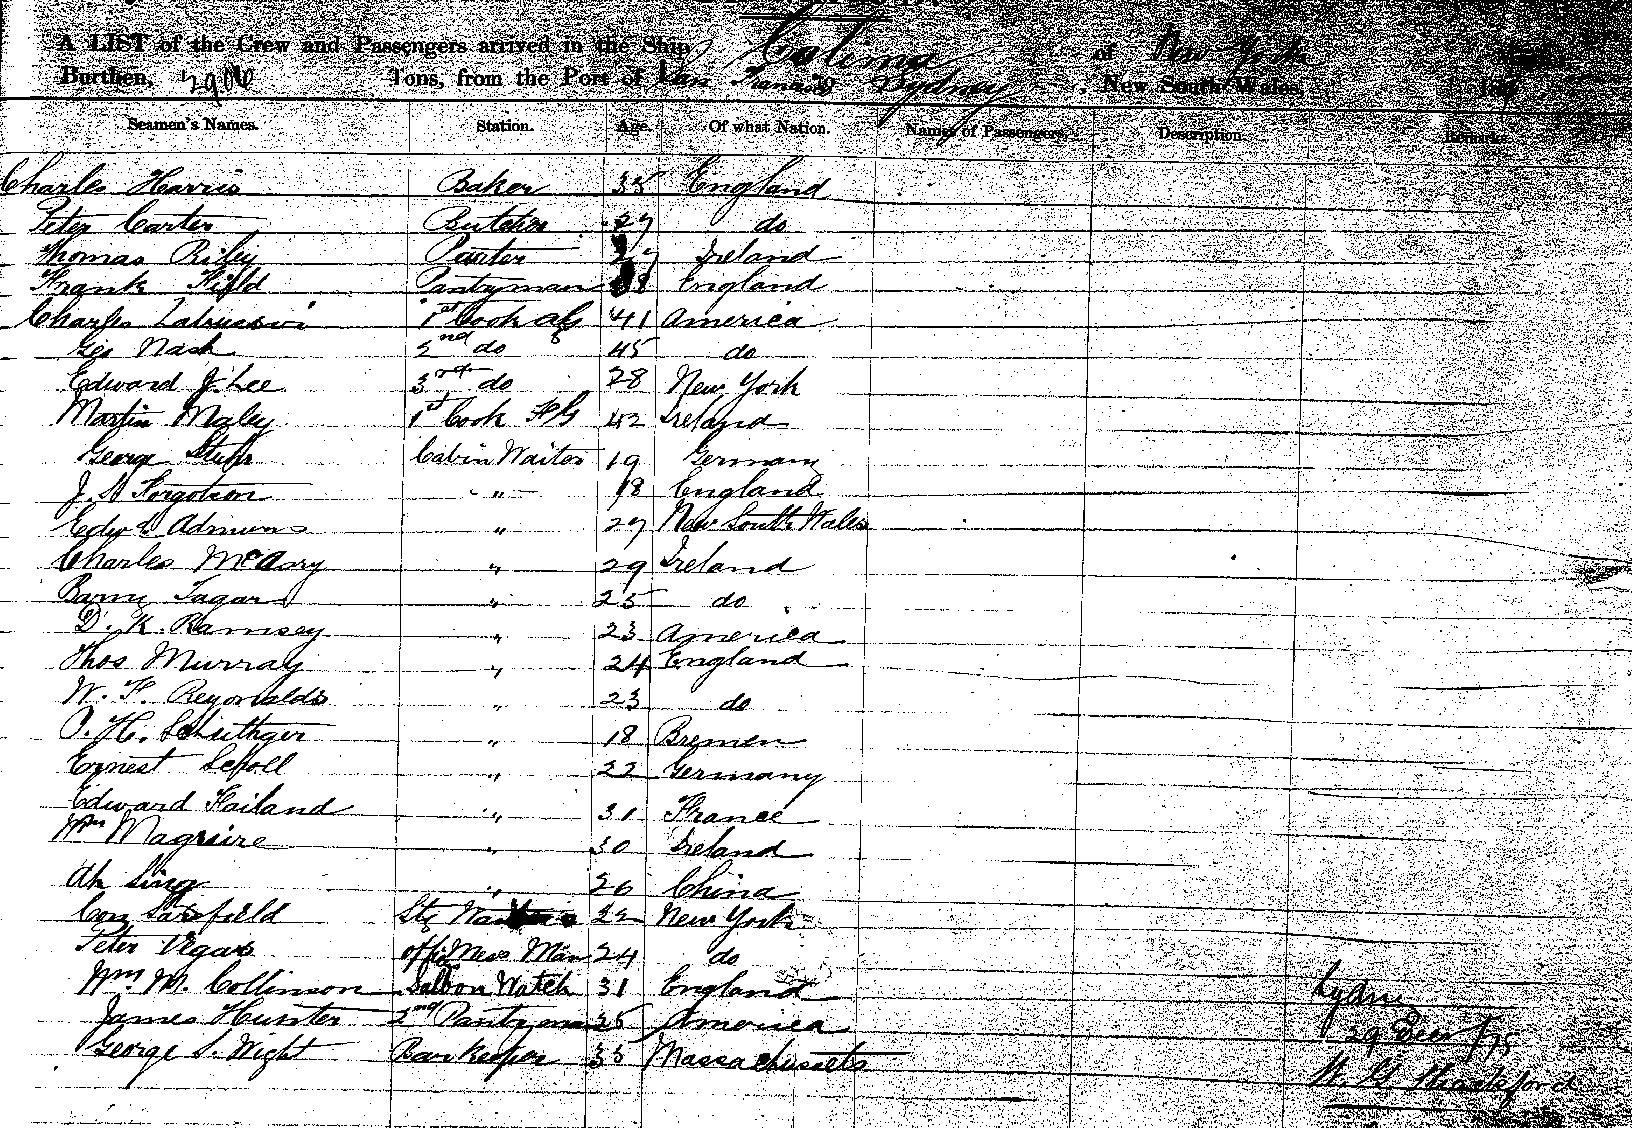 A LIST of the Crew and Passengers arrived in the Ship Colima of New York
Burthen, 2906 Tons, from the Port of San Francisco Sydney, New South Wales,
Seamen's Names. Station. Age. Of what Nation. Names of Passengers. Description. Remarks.
Charles Harris Baker 35 England
Peter Carter Butcher 27 do
Thomas Riley Porter Ireland
Frank Field Pantryman England
Charles 1st Cook 41 America
Geo Nash 2nd do 45 do
Edward J. Lee 3rd do 28 New York
Martin Maley 1st Cook FG 42 Ireland
George Cabin Waiter 19 Germany
J. " 18 England
Edwd " 27 New South Wales
Charles " 29 Ireland
Barny Tagar " 25 do
D. K. Ramsey " 23 America
Thos Murray " 24 England
W. F. Reynolds " 23 do
O. H. " 18 Bremen
Ernest Scholl " 22 Germany
Edward Failand " 31 France
Wm Maguire " 30 Ireland
Ah Sing " 26 China
Con Sarsfield Stg 22 New York
Peter Vegars Off Mess Man 24 do
Wm M. Collinson Saloon Watch 31 England
James Hunter 2nd Pantryman 25 America
George S. Wight Bar Keeper 33 Massachussets
Sydney
29 Decr /75